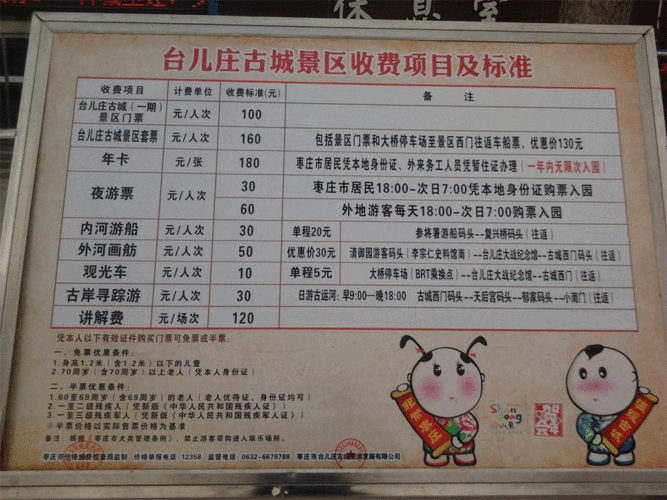 休息室
台儿庄古城景区收费项目及标准
收费项目 计费单位 收费标准(元) 备 注
台儿庄古城（一期）景区门票 元/人次 100
台儿庄古城景区套票 元/人次 160 包括景区门票和大桥停车场至景区西门往返车船票，优惠价130元
年卡 元/张 180 枣庄市居民凭本地身份证、外来务工人员凭暂住证办理（一年内无限次入园）
夜游票 元/人次 30 枣庄市居民18:00-次日7:00凭本地身份证购票入园
60 外地游客每天18:00-次日7:00购票入园
内河游船 元/人次 30 单程20元 参将署游船码头--复兴桥码头（往返）
外河画舫 元/人次 50 优惠价30元 清御园游客码头（李宗仁史料馆南）--台儿庄大战纪念馆--古城西门码头（往返）
观光车 元/人次 10 单程5元 大桥停车场（BRT乘换点）--台儿庄大战纪念馆--古城西门（往返）
古岸寻踪游 元/人次 30 日游古运河：早9:00--晚18:00 古城西门码头--天后宫码头--郁家码头--小南门（往返）
讲解费 元/场次 120
凭本人以下有效证件购买门票可免票或半票：
一、免票优惠条件：
1.身高1.2米（含1.2米）以下的儿童
2.70周岁（含70周岁）以上老人（凭本人身份证）
二、半票优惠条件：
1.60至69周岁（含69周岁）的老人（老人优待证、身份证均可）
2.一至二级残疾人（凭新版《中华人民共和国残疾人证》）
3.一至三级残疾军人（凭新版《中华人民共和国残疾军人证》）
※半票价格以实际售票价格为基准
备注：根据《枣庄市犬类管理条例》，禁止游客带狗进入娱乐场所。
枣庄市价格监督检查局监制 价格举报电话：12358 监督电话：0632-6679788 枣庄市台儿庄古城旅游发展有限公司